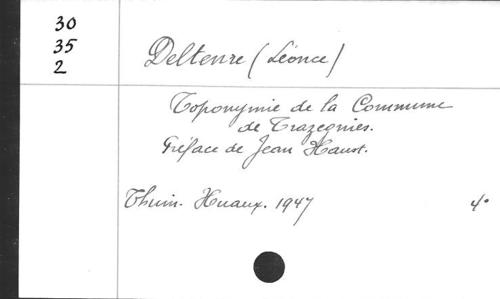 30
35
2
Deltenre (Léonce)
Toponymie de la Commune
de Trazegnies.
Préface de Jean Haust.
Thuin. Huaux. 1947 4°